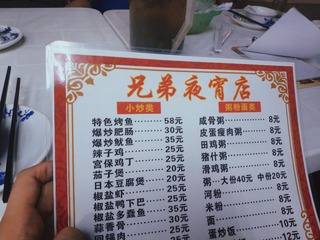 兄弟夜宵店
小炒类
特色烤鱼 58元
爆炒肥肠 30元
爆炒鱿鱼 35元
辣子鸡 25元
宫保鸡丁 25元
茄子煲 20元
日本豆腐煲 20元
椒盐虾 25元
椒盐鸭下巴 25元
椒盐多春鱼 35元
蒜香骨 30元
粥粉面类
咸骨粥 8元
皮蛋瘦肉粥 8元
田鸡粥 8元
猪什粥 8元
滑鸡粥 8元
粥·大份40元 中份20元
河粉 8元
米粉 8元
面 8元
蛋炒饭 10元
12元